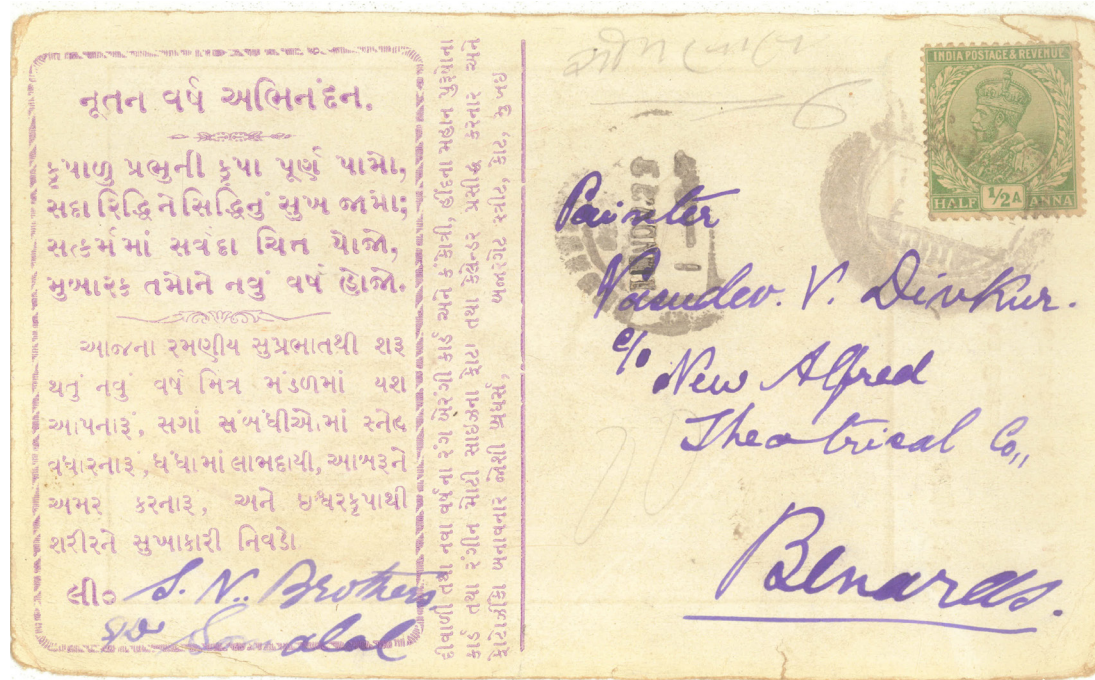 નૂતન વર્ષ અભિનંદન.
કૃપાળુ પ્રભુની કૃપા પૂર્ણ પામો,
સદા રિદ્ધિ ને સિદ્ધિનું સુખ જામો;
સત્કર્મમાં સર્વદા ચિત્ત યોજો,
મુબારક તમોને નવું વર્ષ હોજો.
આજના રમણીય સુપ્રભાતથી શરૂ
થતું નવું વર્ષ મિત્ર મંડળમાં યશ
આપનારૂં, સગાં સંબંધીઓમાં સ્નેહ
વધારનારૂં, ધંધામાં લાભદાયી, આબરૂને
અમર કરનારૂ, અને ઇશ્વરકૃપાથી
શરીરને સુખાકારી નિવડો.
લી૦ S. N. Brothers
દીવાળી તથા નવા વર્ષના રંગ બેરંગી કાર્ડ અને કંકોત્રી, હીંદના મહાન પુરૂષોના
કાર્ડ તથા રંગીન મોટી સાઇઝના ફોટા તથા કેલેન્ડર પ્રસીદ્ધ કરનાર અને
ફોટોઝીંકો બનાવનાર જોશી બ્રધર્સ, બજારગેટ સ્ટ્રીટ, કોટ, મુંબઇ
INDIA POSTAGE & REVENUE
HALF 1/2 A ANNA
Painter
Vasudev. V. Divkur.
c/o New Alfred
Theatrical Co,,
Benares.